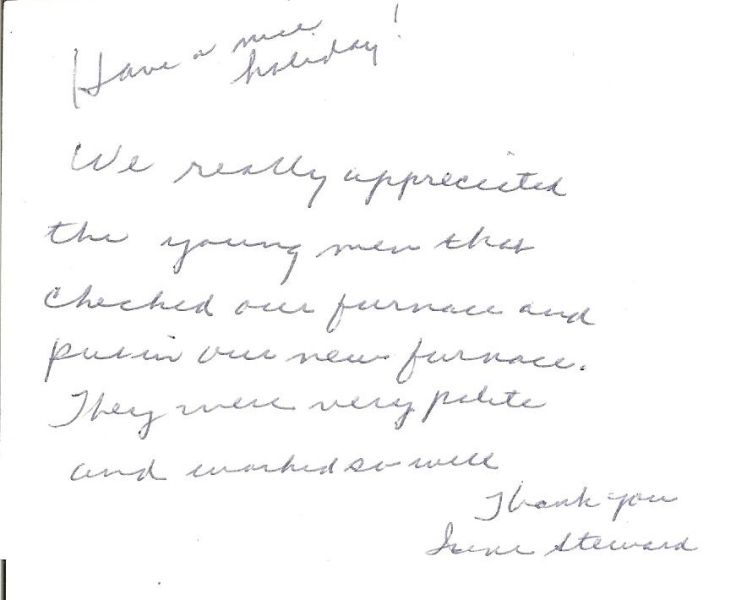 Have a nice
holiday!
We really appreciated
the young men that
checked our furnace and
put in our new furnace.
They were very polite
and worked so well
Thank you
Irene Steward